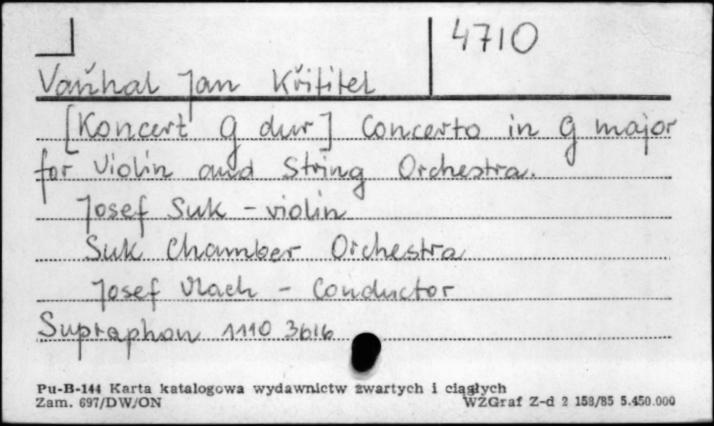 4710
Vaňhal Jan Křtitel
[Koncert G dur] Concerto in G major
for Violin and String Orchestra.
Josef Suk - violin
Suk Chamber Orchestra
Josef Vlach - Conductor
Supraphon 1110 3616
Pu-B-144 Karta katalogowa wydawnictw zwartych i ciągłych
Zam. 697/DW/ON WZGraf Z-d 2 158/85 5.450.000